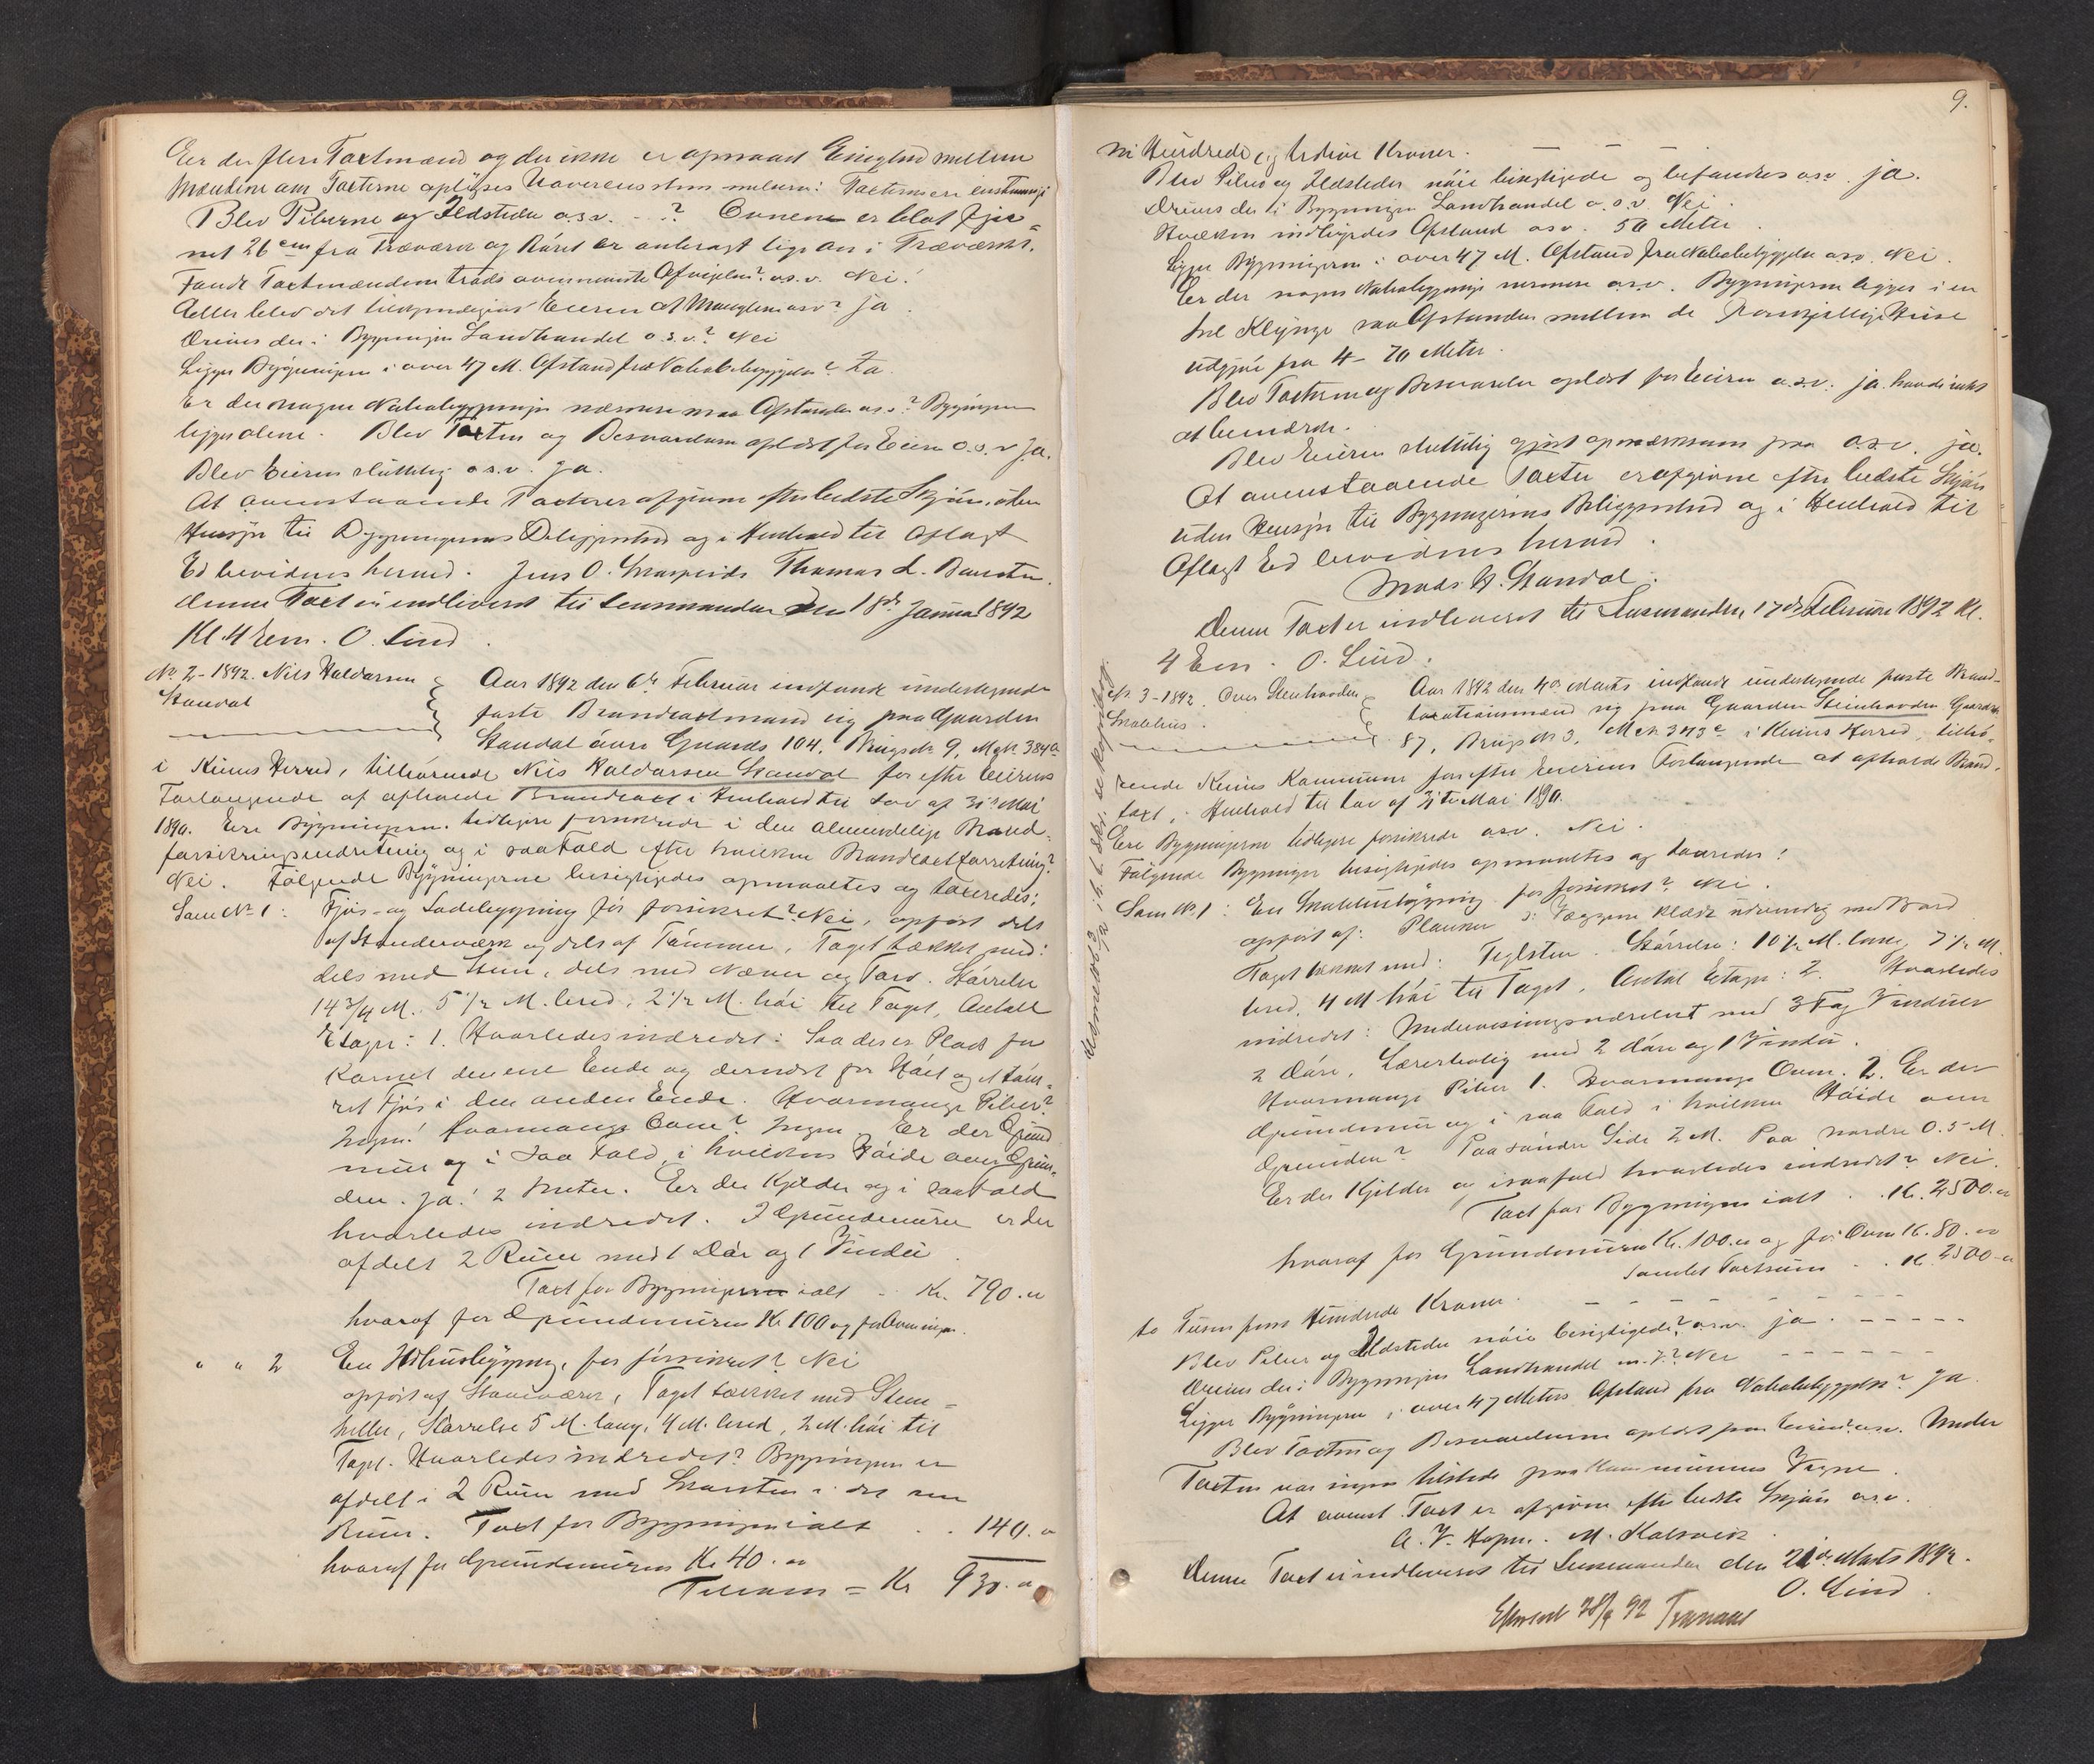 Er der flere Taxtmænd og der ikke er opnaaet Enighed mellem
Mændene om Taxterne oplyses Uoverensstem melsen: Taxterne ere enstemmige
Blev Piberne og Ildsteder o.s.v. - ? Ovnene er blot fjer-
net 26 cm fra Træværk og Röret er anbragt lige an i Træværket.
Fandt Taxtmændene trods ovennævnte Afvigelser? o.s.v. Nei!
Eller blev det tilkjendegivet Eieren at Manglerne osv? ja
Drives der i Bygningen Landhandel o.s.v.? Nei
Ligger Bygningerne i over 47 M. Afstand fra Nabobebyggelse? Ja.
Er der nogen Nabobygninger nærmere maa Afstanden o.s.v? Bygningen
ligger alene. Blev Taxten og Besvarelsen oplæst for Eieren o.s.v ja.
Blev Eieren sluttelig o.s.v. ja.
At ovenstaaende Taxter er afgivne efter bedste Skjön, uden
Hensyn til Bygningernes Beliggenhed og i Henhold til aflagt
Ed bevidnes herved. Jens O. Thomas L.
denne Taxt er indleveret til Lensmanden den 18de Januar 1892
Kl. 4 Eem. O. Lind.
No 2 - 1892. Nils Haldorsen
Standal
Aar 1892 den 6te Februar indfandt undertegnede
faste Brandtaxtmand sig paa Gaarden
Standal övre Gaards 104, Brugs No 9, M No 384a
i Kinns Herred, tilhörende Nils Haldorsen Standal for efter Eierens
Forlangende at afholde Brandtaxt i Henhold til Lov af 31te Mai
1890. Ere Bygningerne tidligere forsikrede i den almindelige Brand-
forsikringsindretning og i saa Fald efter hvilken Brandtaxtforretning?
Nei. Fölgende Bygningerne besigtigedes opmaaltes og taxeredes:
Sam No 1: Fjös- og Ladebygning för forsikret? Nei, opfört dels
af Stenderværk og dels af Tömmer, Taget tækket med:
dels med Sten, dels med Næver og Torv. Störrelse
14 3/4 M. 5 1/2 M. bred, 2 1/2 M. höi til Taget, Antall
Etager: 1. Hvorledes indredet: Saa der er Plads for
Kornet den ene Ende og dernæst for Höet og et töm-
ret Fjös i den anden Ende. Hvormange Piber?
Ingen! Hvormange Ovne? Ingen. Er der Grund
mur og i saa Fald, i hvilken Höide over Grun-
den. ja! 2 Meter. Er der Kjelder og i saa Fald
hvorledes indredet. I Grundmuren er der
afdelt 2 Rum med 1 Dör og 1 Vindu
Taxt for Bygningen ialt - Kr. 790.00
hvoraf for Grundmuren Kr 100 og for Ovn ingen.
" " 2 En Ildhusbygning, för forsikret? Nei
opfört af Stavværk, Taget tækket med Sten-
heller, Störrelse 5 M. lang, 4 M. bred, 2 M. höi til
Taget. Hvorledes indredet? Bygningen er
afdelt i 2 Rum med Skorsten i det ene
Rum. Taxt for Bygningen ialt . . 140.00
hvoraf for Grundmuren Kr 40.00
Tilsam = Kr 930.00
9.
ni Hundrede og tredive Kroner.
Blev Piber og Ildsteder nöie besigtigede og befandtes osv. ja.
Drives der i Bygningen Landhandel o.s.v. Nei.
Hvilken indbyrdes Afstand osv. 50 Meter
Ligger Bygningerne i over 47 M. Afstand fra Nabobebyggelse osv. Nei.
Er der nogen Nabobygninger nærmere osv. Bygningerne ligger i en
hel Klynge saa Afstanden mellem de forskjellige Huse
udgjör fra 4 - 70 Meter.
Blev Taxten og Besvarelse oplæst for Eieren o.s.v. ja. havde intet
at bemærke.
Blev Eieren sluttelig gjort opmærksom paa o.s.v. ja.
At ovenstaaende Taxter er afgivne efter bedste Skjön
uden Hensyn til Bygningernes Beliggenhed og i Henhold til
Aflagt Ed bevidnes herved.
Mads H. Standal.
Denne Taxt er indleveret til Lensmanden 17de Februar 1892 Kl.
4 Em. O. Lind.
No 3 - 1892. Övre Steinhovden
Skolehus.
Aar 1892 den 4de Marts indfandt undertegnede faste Brand-
taxationsmænd sig paa Gaarden Steinhovden Gaards No
87, Brugs No 3, M No 343c i Kinns Herred, tilhö-
rende Kinns Kommune for efter Eierens Forlangende at afholde Brand-
taxt, i Henhold til Lov af 31te Mai 1890.
Ere Bygningerne tidligere forsikrede osv. Nei.
Fölgende Bygninger besigtigedes opmaaltes og taxeredes:
Sam No 1: En Skolebygning för forsikret? Nei.
opfört af: Planker i Væggene klædt udvendig med Bord
Taget tækket med: Teglsten. Störrelse: 10 1/2 M. lang, 7 1/2 M.
bred, 4 M höi til Taget, Antal Etager: 2. Hvorledes
indredet: Undervisningsværelset med 3 Fag Vinduer
2 Döre, Lærerbolig med 2 döre og 1 Vindu.
Hvormange Piber 1. Hvormange Ovne. 2. Er der
Grundmur og i saa Fald i hvilken Höide over
Grunden? Paa söndre Side 2 M. Paa nordre 0.5 M.
Er der Kjelder og isaafald hvorledes indredet? Nei.
Taxt for Bygningen ialt . . Kr. 2500.00
hvoraf for Grundmuren Kr. 100.00 og for Ovne Kr. 80.00
Samlet Taxtsum . . Kr 2500.00
to Tusen fem Hundrede Kroner.
Blev Piber og Ildsteder nöie besigtigede? osv. ja.
Drives der i Bygningen Landhandel m.v.? Nei
Ligger Bygningerne i over 47 Meters Afstand fra Nabobebyggelse? ja.
Blev Taxten og Besvarelserne oplæst for Eieren osv. Under
Taxten var ingen tilstede paa Kommunens Vegne.
At ovenst. Taxt er afgivne efter bedste Skjön osv.
A. V. Hopen. M. Kalsvik
Denne Taxt er indleveret til Lensmanden den 21de Marts 1892.
O. Lind.
92